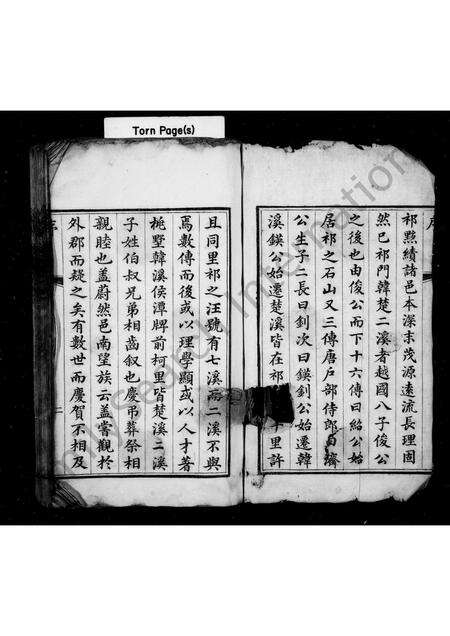 Torn Page(s)
祁黟績諸邑本深末茂源遠流長理固
然已祁門韓楚二溪者越國八子俊公
之後也由俊公而下十六傳曰紿公始
居祁之石山又三傳唐戶部侍郎自濟
公生子二長曰釗次曰鍈釗公始遷韓
溪鍈公始遷楚溪皆在祁十里許
且同里祁之汪號有七溪而二溪不與
焉數傳而後或以理學顯或以人才著
桃墅韓溪侯潭牌前柯里皆楚溪二溪
子姓伯叔兄弟相齒叙也慶弔葬祭相
親睦也蓋蔚然邑南望族云蓋嘗觀於
外郡而疑之矣有數世而慶賀不相及
二
milySearch International